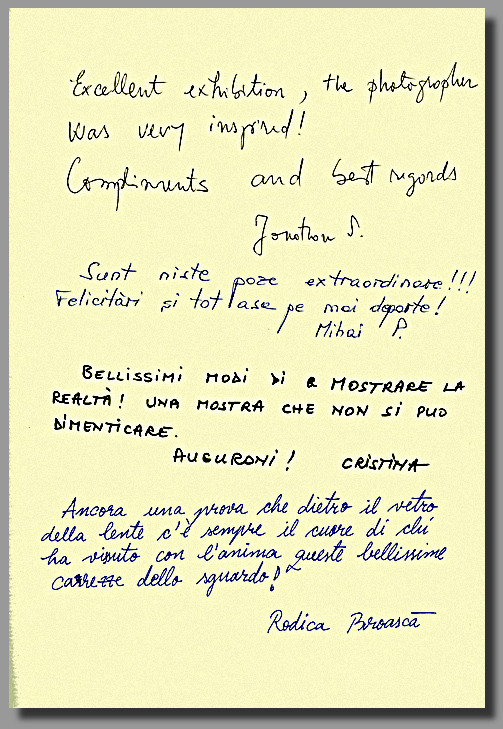 Excellent exhibition, the photographer
was very inspired!
Compliments and best regards
Jonathan S.
Sunt niste poze extraordinare!!!
Felicitări și tot așa pe mai departe!
Mihai P.
BELLISSIMI MODI DI MOSTRARE LA
REALTÀ! UNA MOSTRA CHE NON SI PUO
DIMENTICARE.
AUGURONI! CRISTINA
Ancora una prova che dietro il vetro
della lente c'è sempre il cuore di chi
ha vissuto con l'anima queste bellissime
carezze dello sguardo!
Rodica Broască